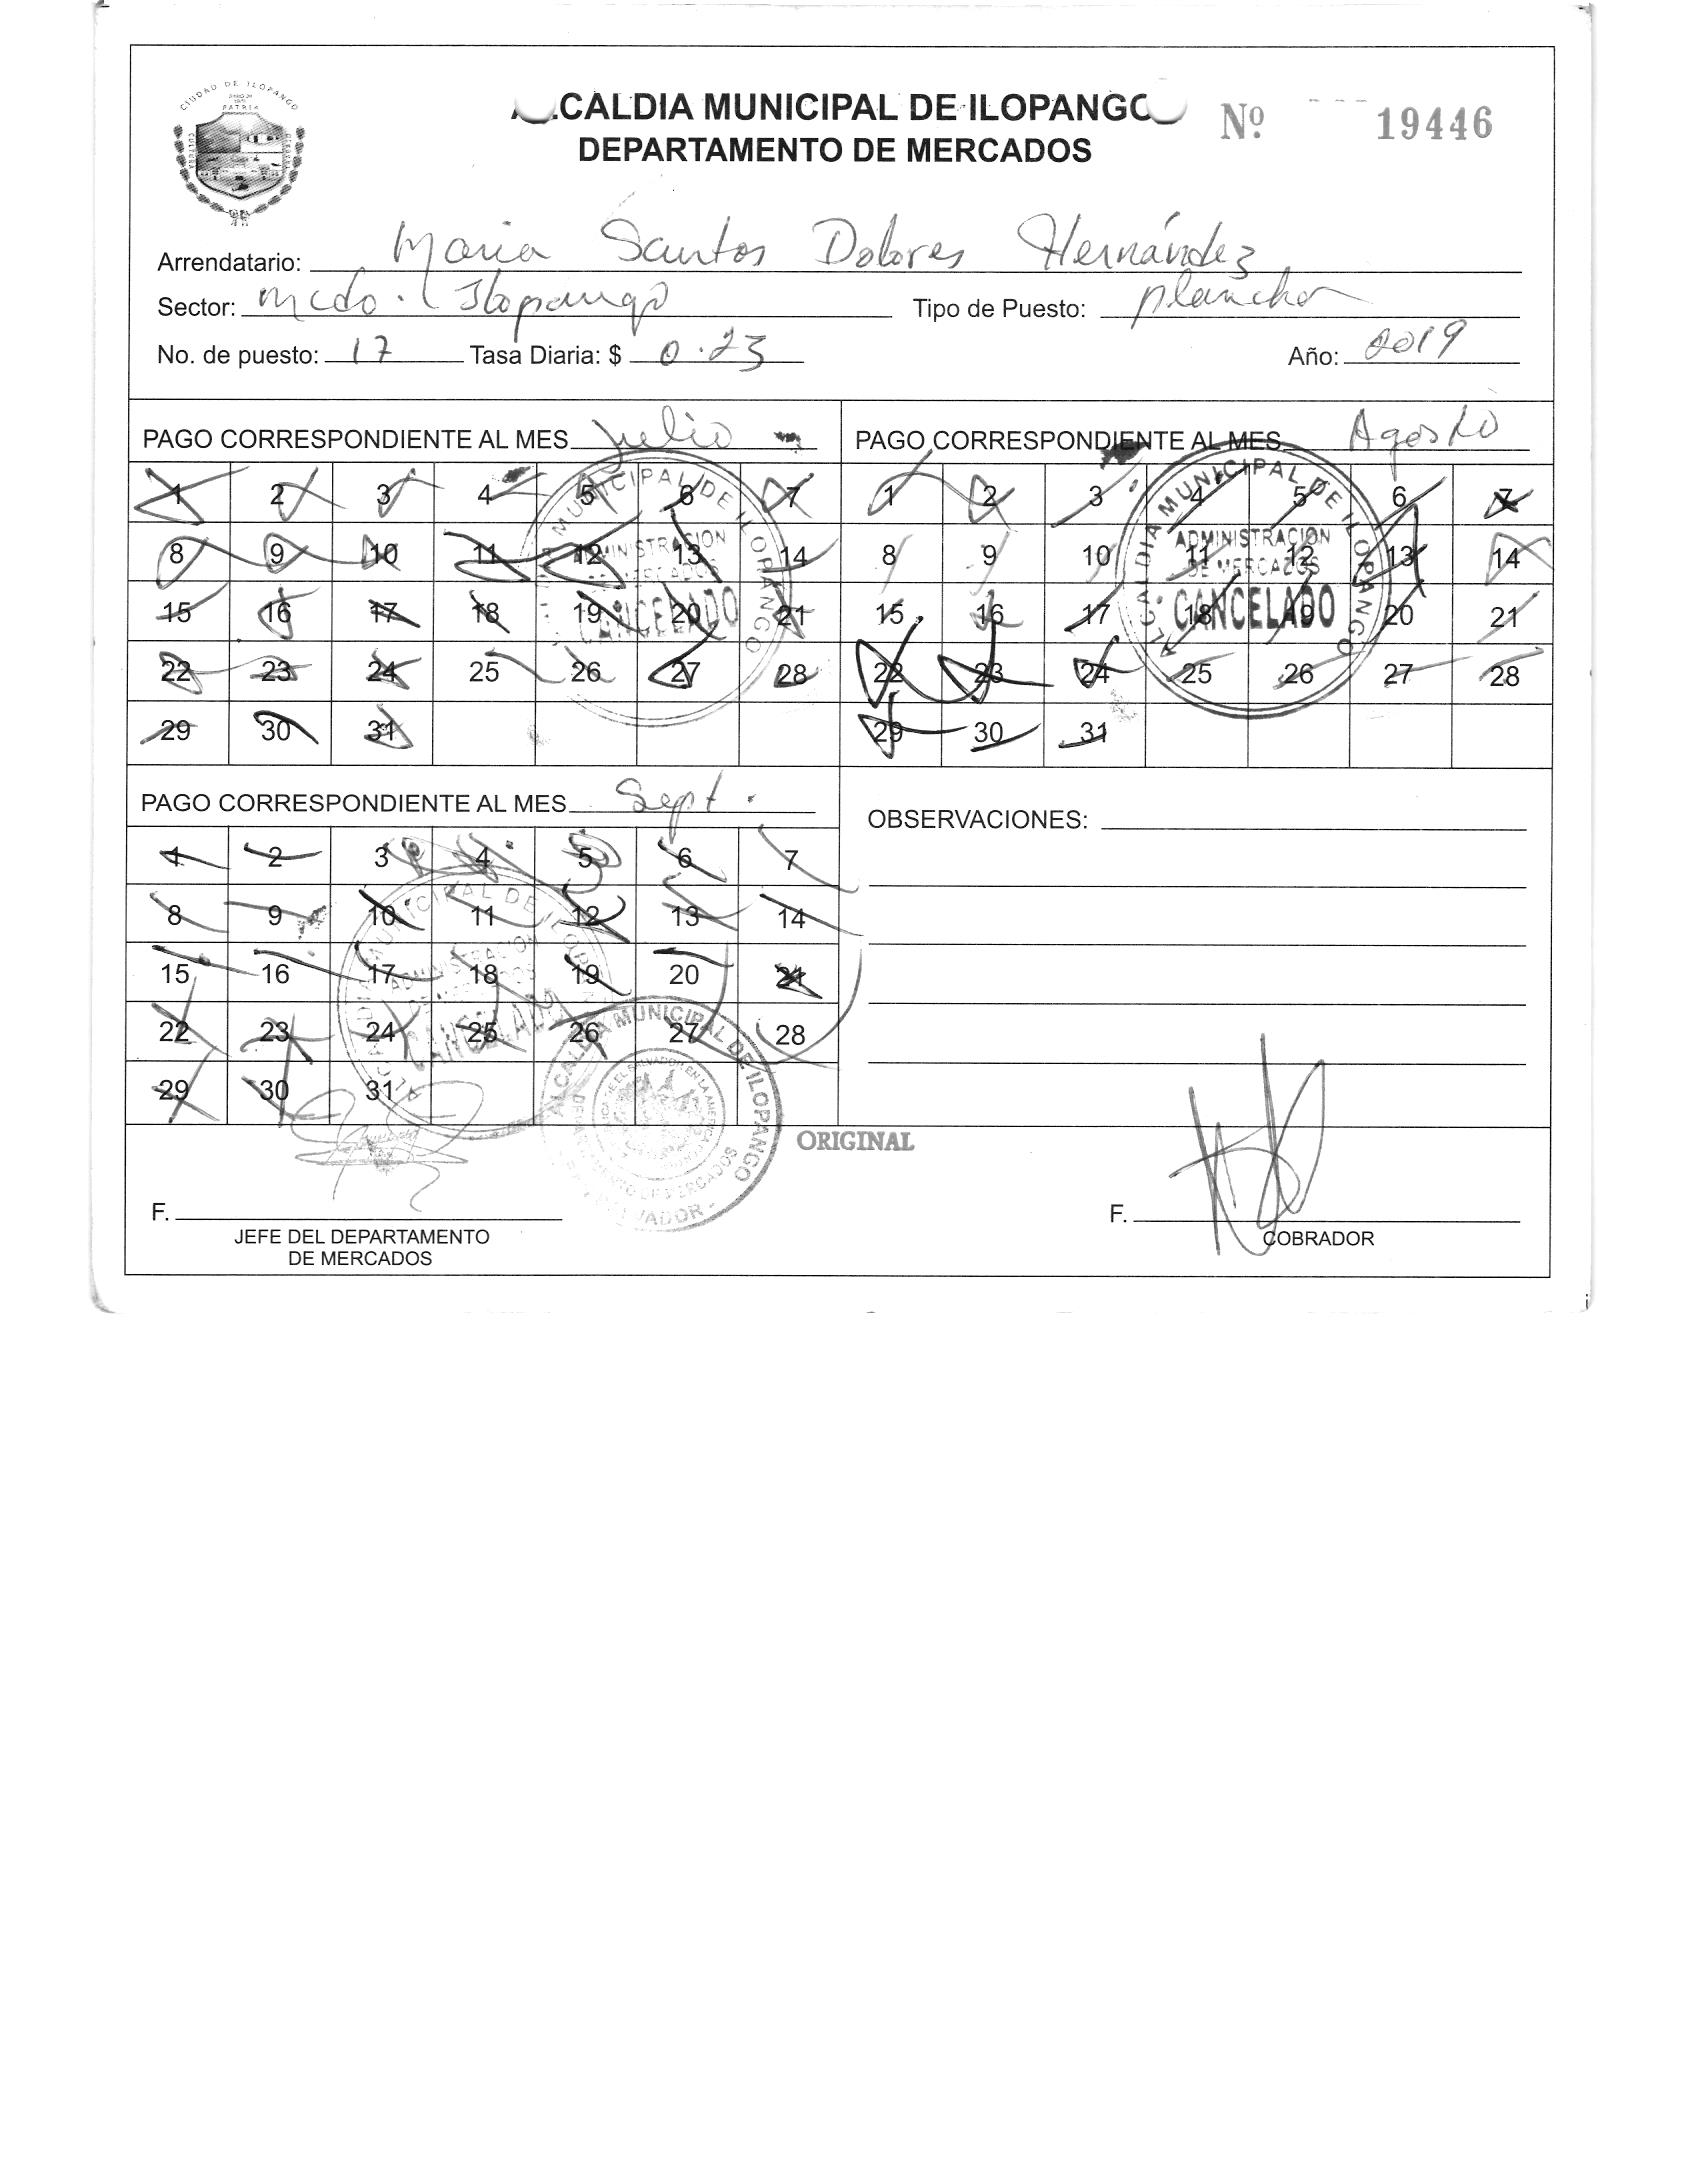 CIUDAD DE ILOPANGO
PATRIA
CULTURA
ALCALDIA MUNICIPAL DE ILOPANGO
Nº 19446
DEPARTAMENTO DE MERCADOS
Arrendatario: Maria Santos Dolores Hernández
Sector: mcdo. Ilopango Tipo de Puesto: plancha
No. de puesto: 17 Tasa Diaria: $ 0.23 Año: 2019
PAGO CORRESPONDIENTE AL MES Julio
1 2 3 4 5 6 7
8 9 10 11 12 13 14
15 16 17 18 19 20 21
22 23 24 25 26 27 28
29 30 31
MUNICIPAL DE ILOPANGO
ADMINISTRACION
DE MERCADOS
CANCELADO
PAGO CORRESPONDIENTE AL MES Agosto
1 2 3 4 5 6 7
8 9 10 11 12 13 14
15 16 17 18 19 20 21
22 23 24 25 26 27 28
29 30 31
ALCALDIA MUNICIPAL DE ILOPANGO
ADMINISTRACION
DE MERCADOS
CANCELADO
PAGO CORRESPONDIENTE AL MES Sept.
1 2 3 4 5 6 7
8 9 10 11 12 13 14
15 16 17 18 19 20 21
22 23 24 25 26 27 28
29 30 31
ALCALDIA MUNICIPAL DE ILOPANGO
ADMINISTRACION
DE MERCADOS
CANCELADO
OBSERVACIONES:
ALCALDIA MUNICIPAL DE ILOPANGO
DEPARTAMENTO DE MERCADOS
EL SALVADOR EN LA AMERICA
ORIGINAL
F.
JEFE DEL DEPARTAMENTO
DE MERCADOS
F.
COBRADOR